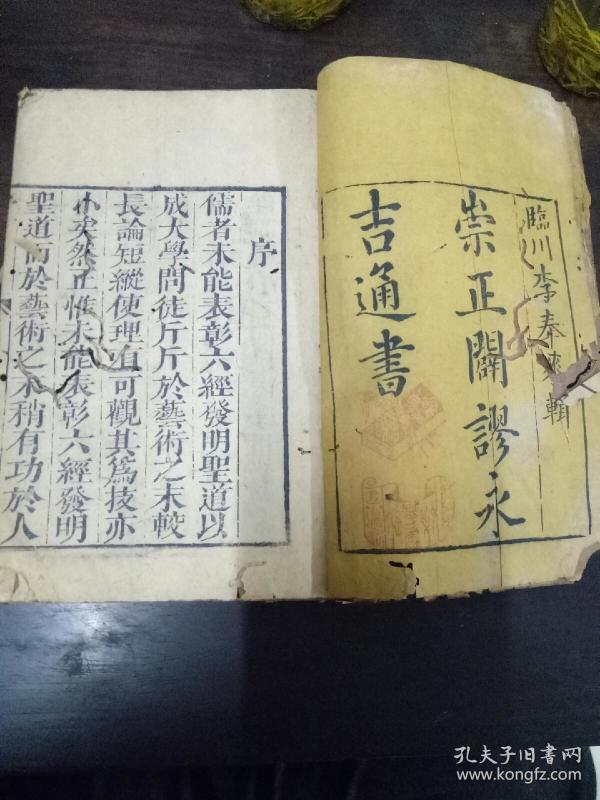 臨川李奉輯
崇正闢謬永
吉通書
序
儒者未能表彰六經發明聖道以
成大學問徒斤斤於藝術之末較
長論短縱使理有可觀其為技亦
小矣然正惟未能表彰六經發明
聖道而於藝術之末稍有功於人
孔夫子旧書网
www.kongfz.com